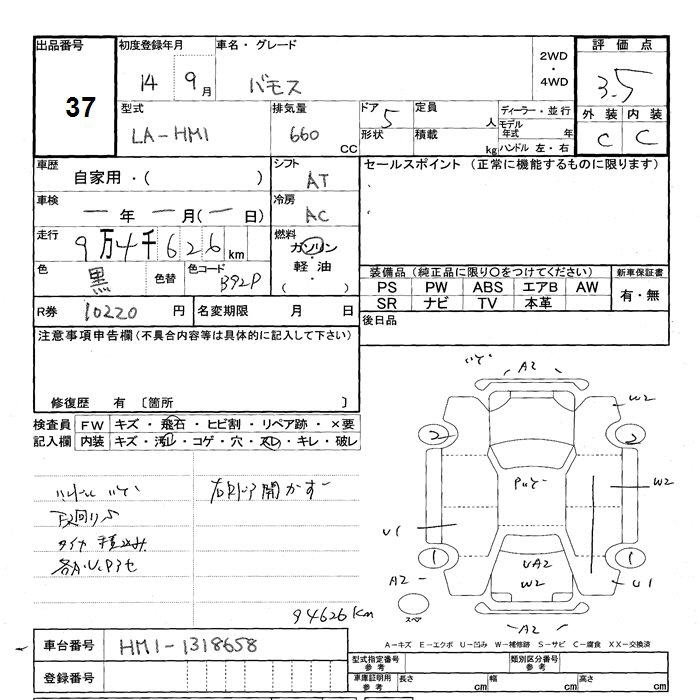 出品番号 37
初度登録年月 14 9月
車名・グレード バモス
2WD・4WD
評価点 3.5
外装 C 内装 C
型式 LA-HM1
排気量 660 CC
ドア 5
形状
定員 人
積載 kg
ディーラー・並行
モデル年式 年
ハンドル 左・右
車歴 自家用・( )
シフト AT
セールスポイント(正常に機能するものに限ります)
車検 ー年ー月(ー日)
冷房 AC
走行 9万4千626km
燃料 ガソリン・軽油・( )
色 黒
色替
色コード B92P
装備品(純正品に限り○をつけてください)
新車保証書 有・無
PS PW ABS エアB AW
SR ナビ TV 本革
R券 10220円
名変期限 月 日
後日品
注意事項申告欄(不具合内容等は具体的に記入して下さい)
修復歴 有 〔箇所 〕
検査員記入欄
FW キズ・飛石・ヒビ割・リペア跡・×要
内装 キズ・汚レ・コゲ・穴・スレ・キレ・破レ
下回りS
タイヤ積込み
94626km
A2
W2
2 2
W2
U1
1 1
A2
UA2
W2
U1
スペア
A2
A-キズ E-エクボ U-凹み W-補修跡 S-サビ C-腐食 XX-交換済
車台番号 HM1-1318658
登録番号
型式指定番号 参考
類別区分番号 参考
車庫証明用 参考
長さ cm 幅 cm 高さ cm